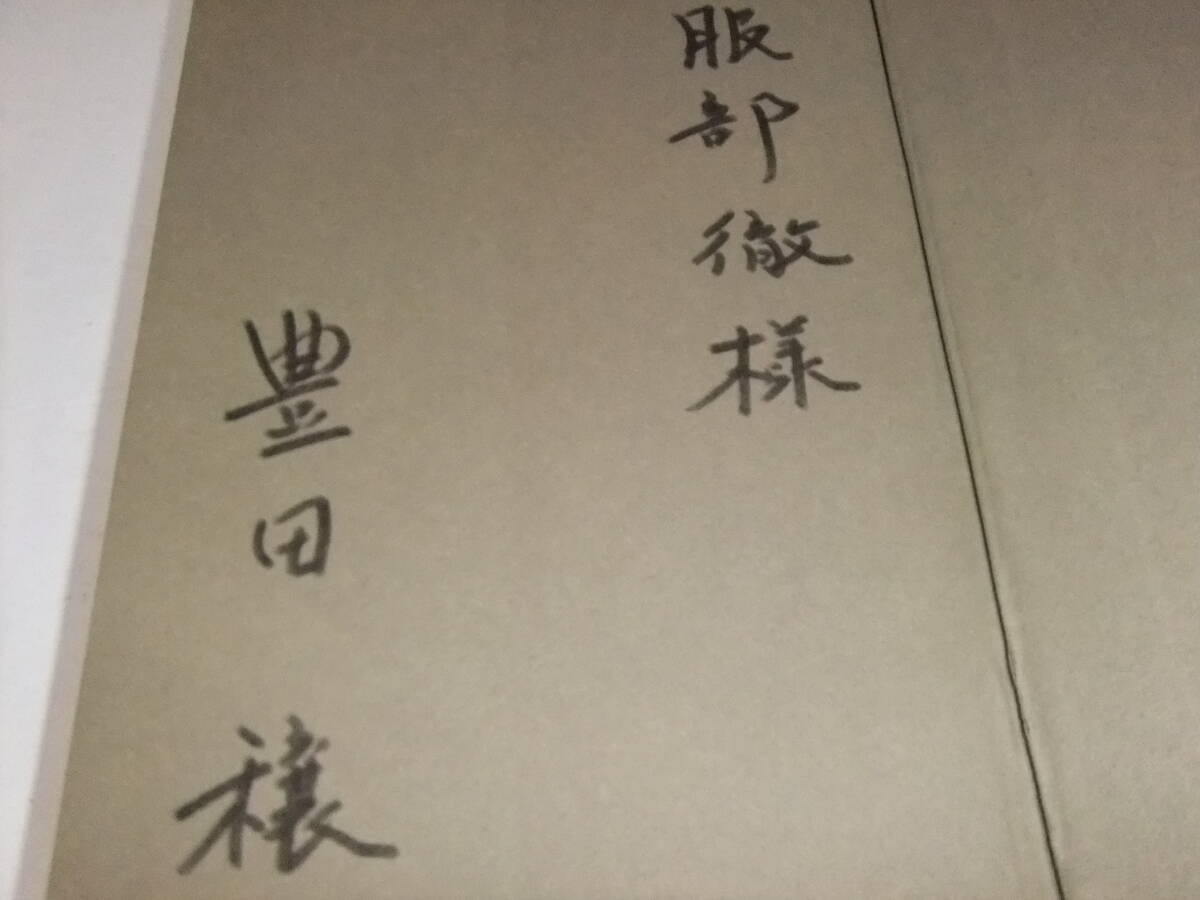 服部徹様
豊田穣